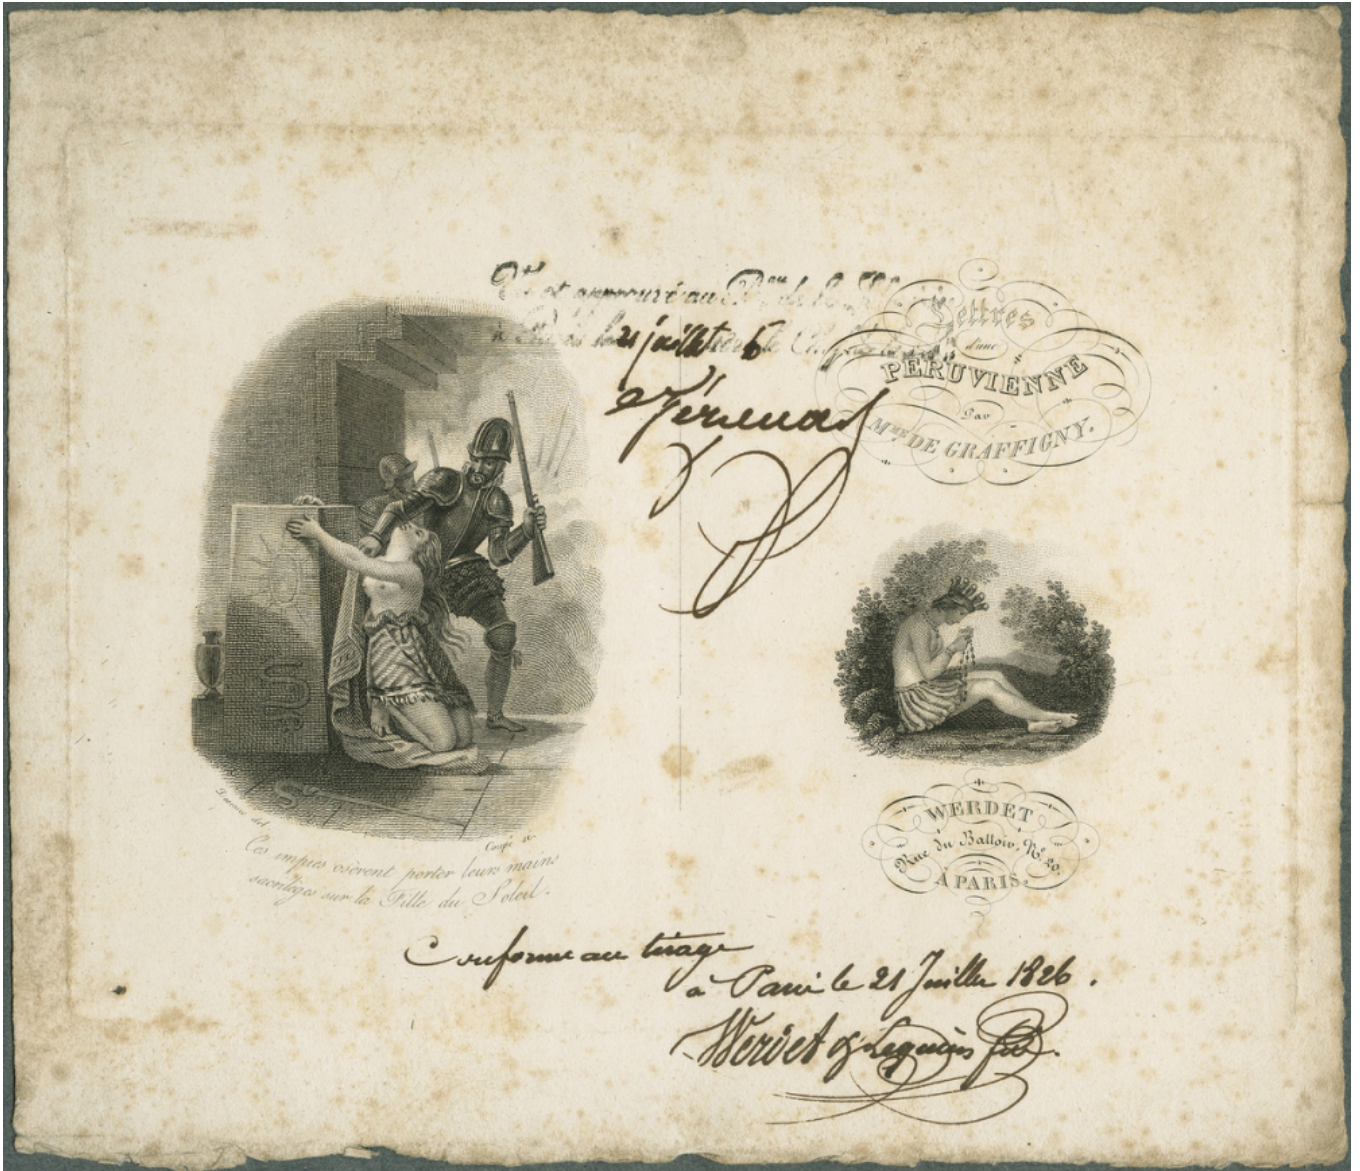 Vu et approuvé au
le 21 juillet 6
Lettres
d'une
PÉRUVIENNE
Par
Mme DE GRAFFIGNY.
Coupé sc.
Ces impies osèrent porter leurs mains
sacrilèges sur la Fille du Soleil.
WERDET
Rue du Battoir, No. 20.
A PARIS.
Conforme au tirage
à Paris le 21 Juillet 1826.
Werdet & Lequien fils.